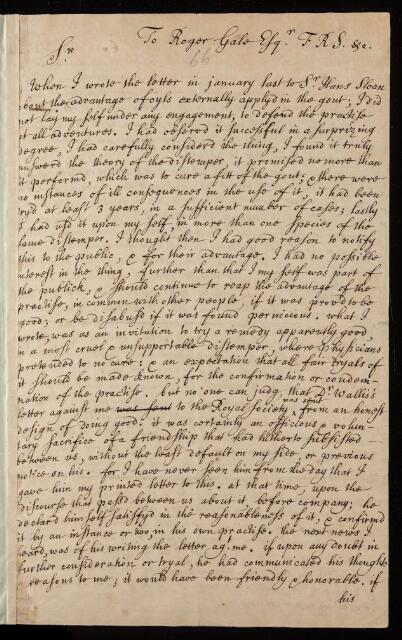 To Roger Gale Esqr. F R S. &c.
66
Sr.
When I wrote the letter in january last to Sr. Hans Sloan
about the advantage of oyls externally applyd in the gout; I did
not lay my self under any engagement, to defend the practise
at all adventures. I had observd it successful in a surprizing
degree, I had carefully considerd the thing, I found it truly
answerd the theory of the distemper, it promised no more than
it performd, which was to cure a fitt of the gout; & there were
no instances of ill consequences in the use of it, it had been
tryd at least 3 years, in a sufficient number of cases; lastly
I had usd it upon my self, in more than one species of the
same distemper. I thought then I had good reason to notify
this to the public, & for their advantage. I had no possible
interest in the thing, further than that I my self was part of
the publick, & should continue to reap the advantage of the
practise, in common with other people, if it was provd to be
good; or be disabusd if it was found pernicious. what I
wrote, was as an invitation to try a remedy apparently good
in a most cruel & unsupportable distemper, where Physicians
pretended to no cure; & an expectation that all fair tryals of
it should be made known, for the confirmation or condem-
nation of the practise. but no one can judg, that Dr. Wallis's
letter against me was sent to the Royal Society was sent, from an honest
design of doing good. it was certainly an officious & volun-
tary sacrifice of a friendship that had hitherto subsisted
between us, without the least default on my side, or previous
notice on his. for I have never seen him from the day that I
gave him my printed letter to this. at that time, upon the
discourse that passd between us about it, before company; he
declard himself satisfyd in the reasonableness of it, & confirmd
it by an instance or two, in his own practise. the next news I
heard, was of his writing the letter agt. me. if upon any doubt in
further consideration or tryal, he had communicated his thoughts
& reasons to me; it would have been friendly & honorable. if
his